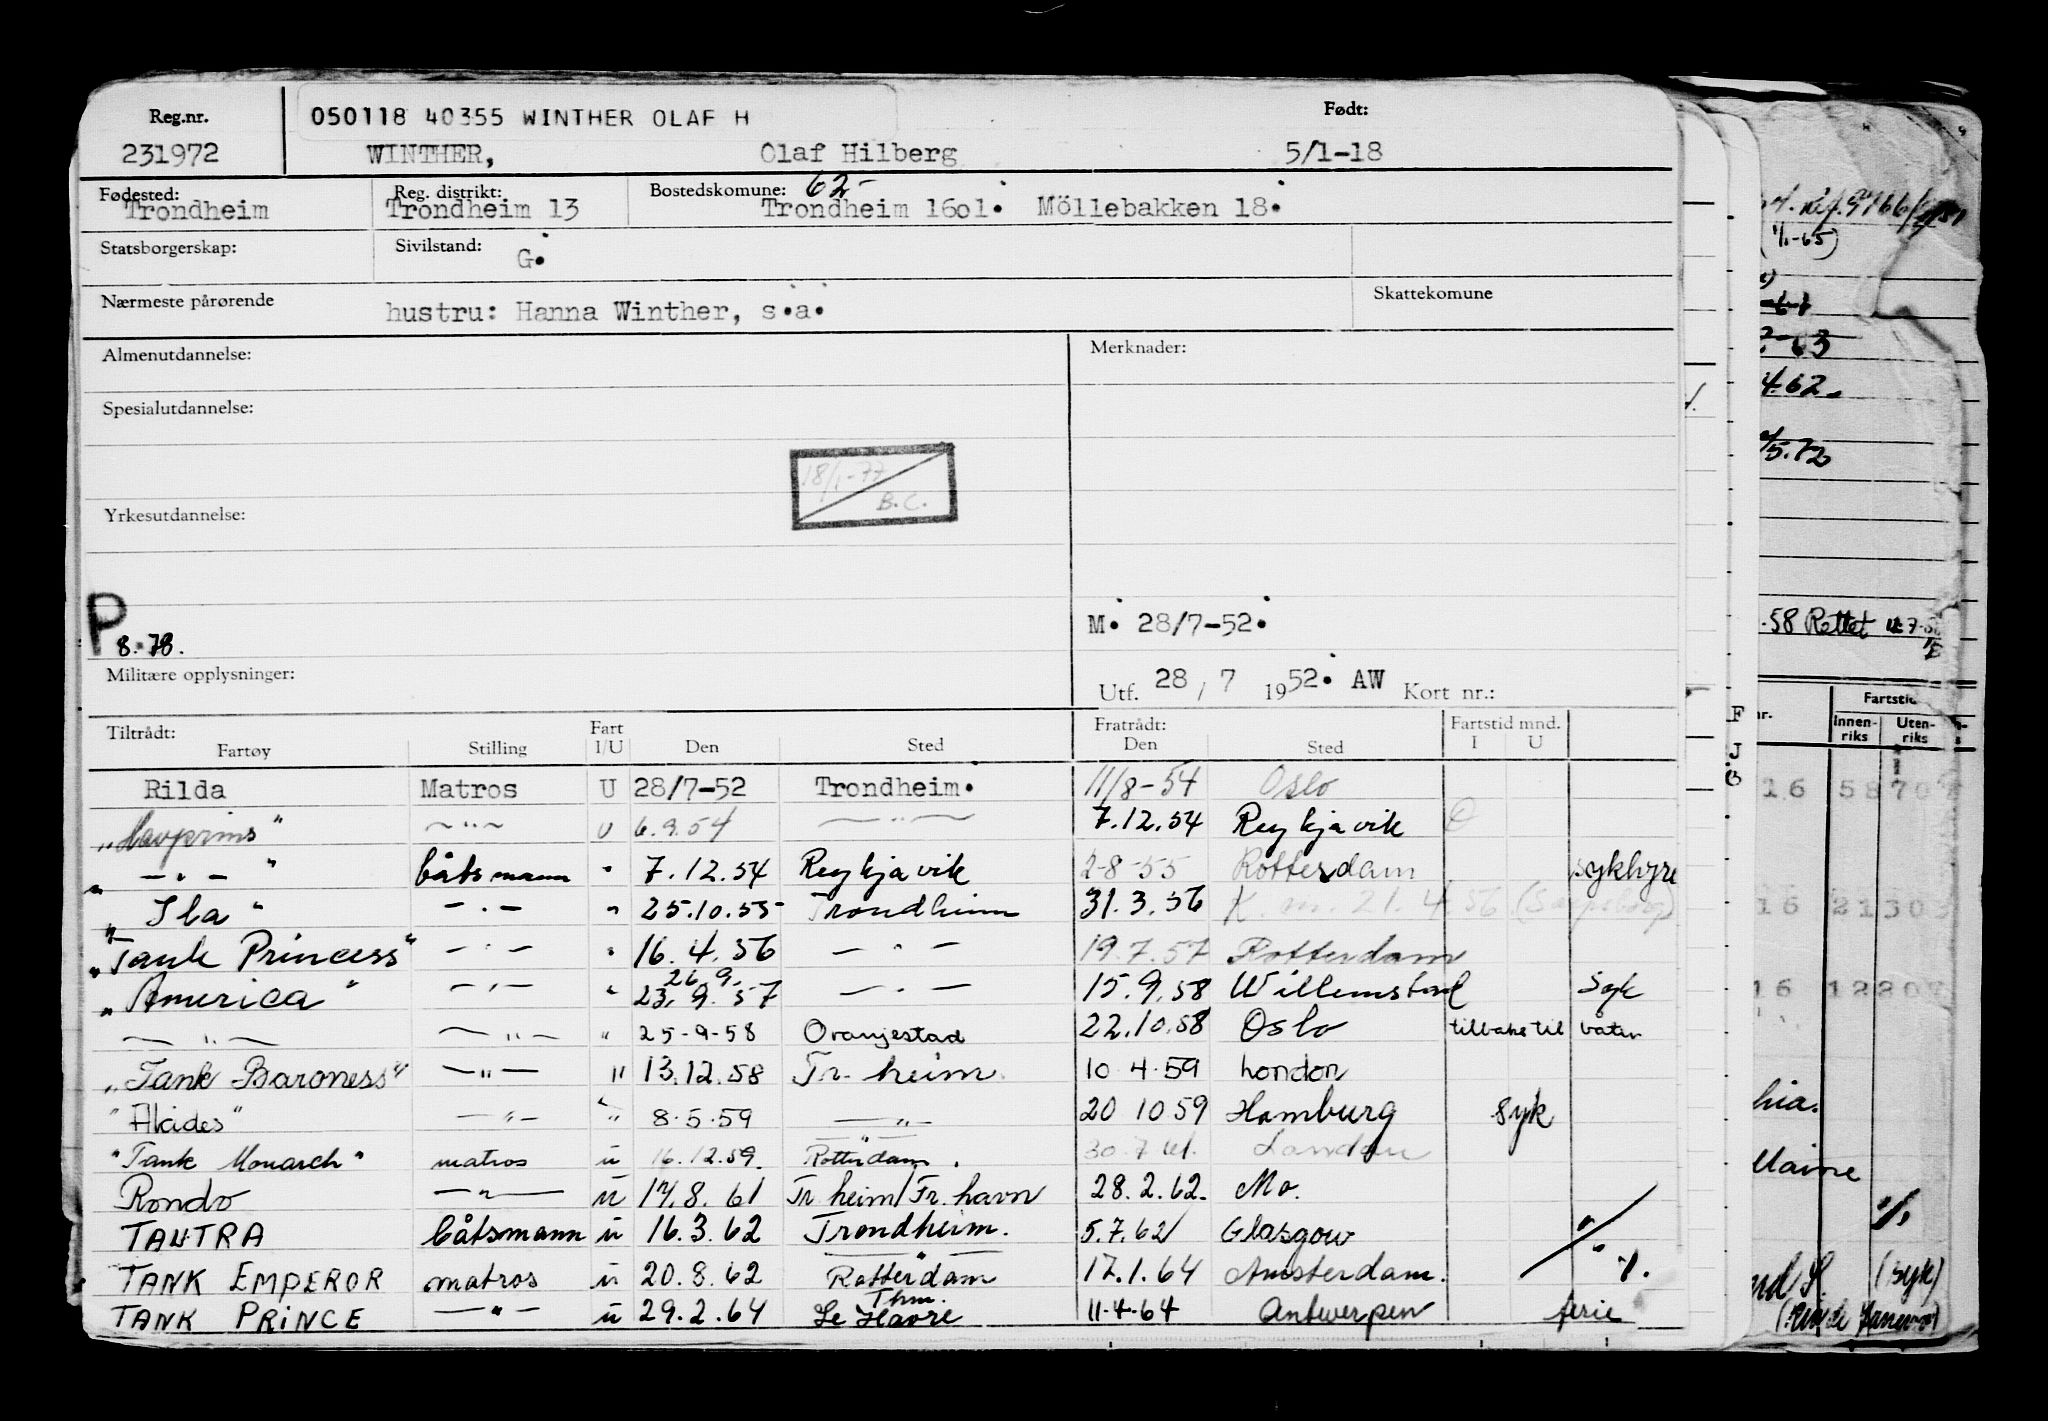 Reg.nr. 050118 40355 WINTHER OLAF H Født:
231972 WINTHER, Olaf Hilberg 5/1-18
Fødested: Reg. distrikt: Bostedskomune: 62-
Trondheim Trondheim 13 Trondheim 16o1. Möllebakken 18.
Statsborgerskap: Sivilstand: G.
Nærmeste pårørende hustru: Hanna Winther, s.a. Skattekomune
Almenutdannelse: Merknader:
Spesialutdannelse:
18/1-77
B.C.
Yrkesutdannelse:
P
8.78.
M. 28/7-52.
Militære opplysninger: Utf. 28, 7 1952. AW Kort nr.:
Tiltrådt: Fart Fratrådt: Fartstid mnd.
Fartøy Stilling I/U Den Sted Den Sted I U
Rilda Matros U 28/7-52 Trondheim. 11/8-54 Oslo
"Havprins" -"- U 6.9.54 -"- 7.12.54 Reykjavik
" -"- " båtsmann " 7.12.54 Reykjavik 2-8-55 Rotterdam sykhyre
"Ila" -"- " 25.10.55 Trondheim 31.3.56 K. m. 21.4.56
"Tank Princess" -"- " 16.4.56 -"- 19.7.57 Rotterdam
26.9.
"America" -"- " 23.9.57 -"- 15.9.58 Willemstad Syk
-"- -"- " 25-9-58 Oranjestad 22.10.58 Oslo tilbake til båten
"Tank Baroness" -"- " 13.12.58 Tr.heim 10 4.59 London
"Alcides" -"- " 8.5.59 -"- 20 10 59 Hamburg syk
"Tank Monarch" matros u 16.12.59. Rotterdam. 30.7.61. London
Rondo -"- u 17.8.61 Tr.heim/Fr.havn 28.2.62. Mo.
TANTRA båtsmann u 16.3.62 Trondheim. 5.7.62 Glasgow
TANK EMPEROR matros u 20.8.62 Rotterdam 17.1.64 Amsterdam. ./.
Thm.
TANK PRINCE -"- u 29.2.64 Le Havre 11-4-64 Antwerpen ferie
(1/1-65)
2-63
4.62.
5.72
.58 Rettet
Fartstid
Innen-riks Uten-riks
16 5870
16 2130
16 1220
hia.
(syk)